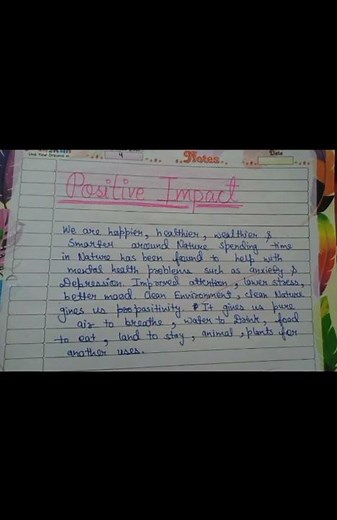 4
Notes
Date
Positive Impact
We are happier, healthier, wealthier &
Smarter around Nature spending time
in Nature has been found to help with
mental health problems such as anxiety &
Depression. Improved attention, lower stress,
better mood. Clean Environment, clean Nature
gives us positivity. It gives us pure
air to breathe, water to Drink, food
to eat, land to stay, animal, plants for
another uses.